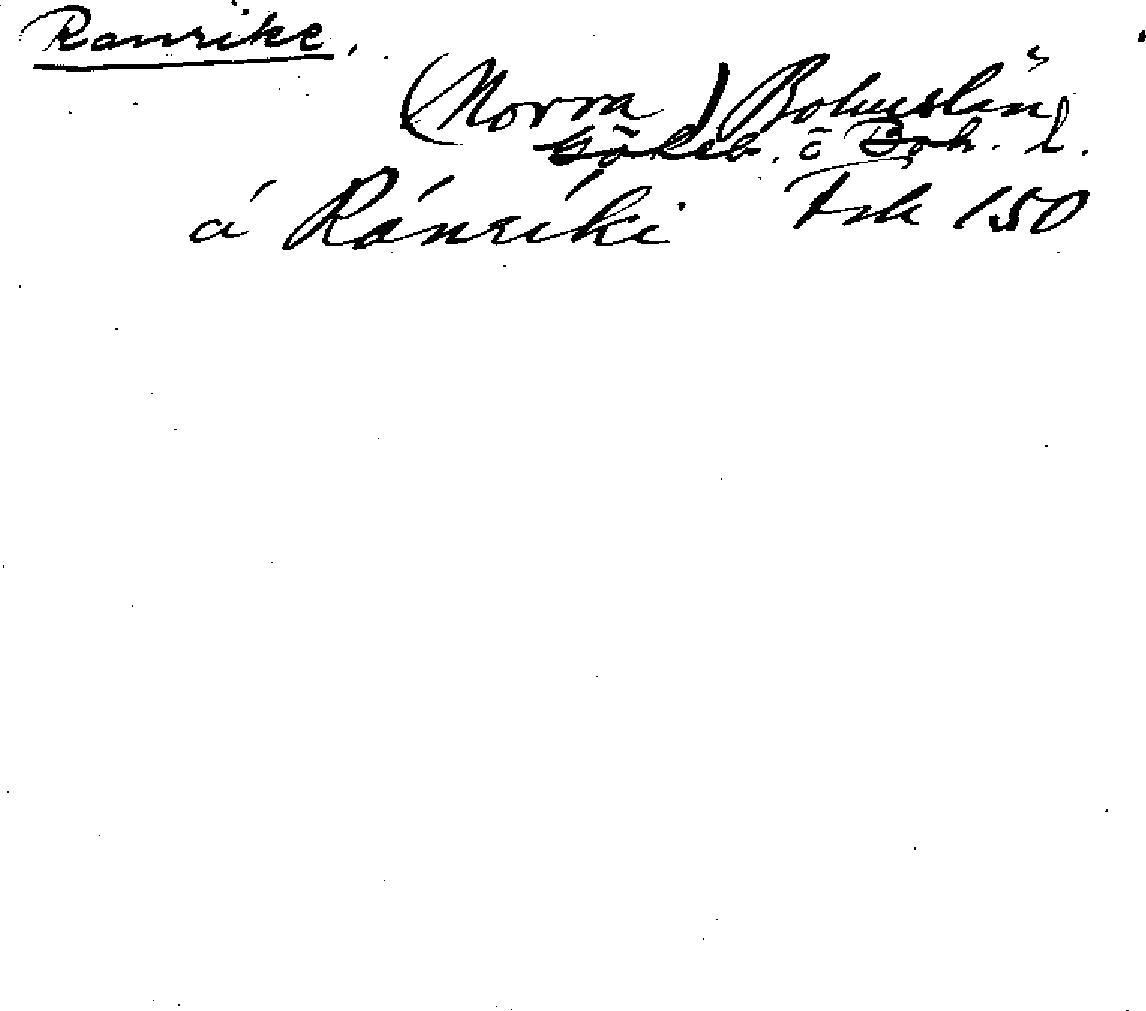 Ranrike.
(Norra) Bohuslän
Göteb. o Boh. l.
á Ránríki Fsk 150